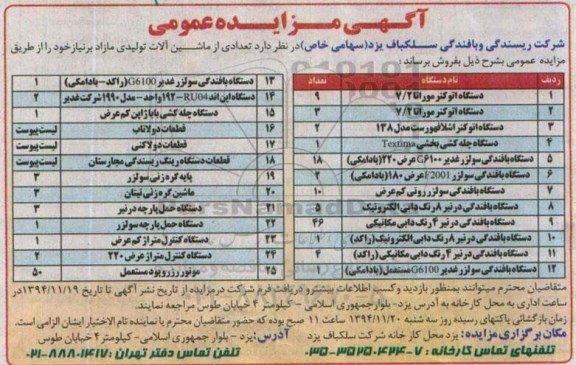 آگهی مزایده عمومی
شرکت ریسندگی وبافندگی سلکباف یزد(سهامی خاص)در نظر دارد تعدادی از ماشین آلات تولیدی مازاد برنیاز خود را از طریق
مزایده عمومی بشرح ذیل بفروش برساند:
ردیف نام دستگاه تعداد
دستگاه اتوکنر موراتا ۷/۲ ۹
۲ دستگاه اتوکنر موراتا ۷/۲ ۳
۳ دستگاه اتوکنر اشلافهورست مدل ۱۳۸ ۲
۴ دستگاه چله کشی بخشی Textima ۱
۵ دستگاه بافندگی سولزر غدیر G6100 عرض ۲۲۰(بادامکی) ۱۸
۶ دستگاه بافندگی سولزر F2001 عرض ۱۸۰(بادامکی) ۲
۷ دستگاه بافندگی سولزر روتی کم عرض ۱۰
۸ دستگاه بافندگی درنیر ۸ رنگ دابی الکترونیک ۵
۹ دستگاه بافندگی درنیر ۴ رنگ دابی مکانیکی ۴۶
۱۰ دستگاه بافندگی درنیر ۸ رنگ دابی الکترونیک(راکد) ۱
۱۱ دستگاه بافندگی درنیر ۴ رنگ دابی مکانیکی(راکد) ۴
۱۲ دستگاه بافندگی سولزر غدیر G6100 مستعمل(بادامکی) ۱
۱۳ دستگاه بافندگی سولزر غدیر G6100(راکد-بادامکی) ۱
۱۴ دستگاه اپن اند RU04-۱۹۲واحد-مدل ۱۹۹۰شرکت غدیر ۲
۱۵ دستگاه چله کشی باباژاپن کم عرض ۱
۱۶ قطعات دولاتاب لیست پیوست
۱۷ قطعات دولاکنی لیست پیوست
۱۸ قطعات دستگاه رینگ ریسندگی مجارستان لیست پیوست
۱۹ پایه گره زنی سولزر ۳
۲۰ ماشین گره زنی تیتان ۳
۲۱ دستگاه حمل پارچه درنیر ۳
۲۲ دستگاه حمل پارچه سولزر ۱
۲۳ دستگاه کنترل متراژ کم عرض ۱
۲۴ دستگاه کنترل متراژ عرض ۲۲۰ ۲
۲۵ موتور رزرو پود مستعمل ۵۰
متقاضیان محترم میتوانند بمنظور بازدید وکسب اطلاعات بیشتر و دریافت فرم شرکت در مزایده از تاریخ نشر آگهی تا تاریخ ۱۳۹۴/۱۱/۱۹در
ساعت اداری به محل کارخانه به آدرس یزد- بلوار جمهوری اسلامی - کیلومتر ۴ خیابان طوس مراجعه نمایند.
زمان بازگشائی پاکتهای رسیده روز سه شنبه ۱۳۹۴/۱۱/۲۰ ساعت ۱۱ صبح بوده که حضور متقاضیان محترم یا نماینده تام الاختیار ایشان الزامی است.
مکان برگزاری مزایده: یزد محل کارخانه شرکت سلکباف یزد آدرس: یزد - بلوار جمهوری اسلامی- کیلومتر۴ خیابان طوس
تلفنهای تماس کارخانه : ۷-۳۵۲۵۰۴۲۴-۰۳۵ تلفن تماس دفتر تهران : ۸۸۸۰۱۴۱۷-۰۲۱